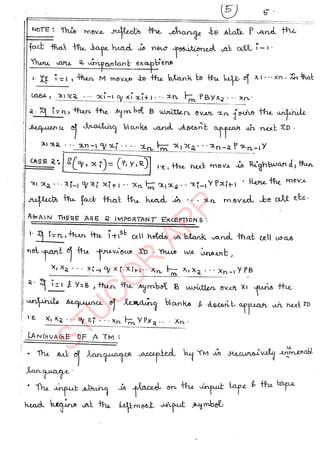 5
5.
NOTE: This move reflects the change to state P and the
fact that the tape head is now positioned at cell i-1.
There are 2 important exceptions
1. If i=1, then M moves to the blank to the left of x1...xn. In that
case, x1x2 ... xi-1 q xi xi+1... xn ⊢m PByx2... xn.
2. If i=n, then the symbol B written over xn joins the infinite
sequence of trailing blanks and doesn't appear in next ID.
x1 x2 ... xn-1 q xi ... xn ⊢m x1 x2 ... xn-2 P xn-1 Y
CASE 2: S(q, xi) = (P, Y, R) i.e, the next move is Rightward, then
x1 x2 ... xi-1 q xi xi+1 ... xn ⊢m x1 x2 ... xi-1 Y P xi+1 . Here the move
reflects the fact that the head is ... xn moved to cell etc.
AGAIN THERE ARE 2 IMPORTANT EXCEPTIONS:
1. If i=n, then the i+1st cell holds a blank and that cell was
not part of the previous ID. Thus we insert,
x1 x2 ... xi-1 q xi xi+1... xn ⊢m x1 x2 ... xn-1 Y PB
2. If i=1 & Y=B, then the symbol B written over x1 joins the
infinite sequence of leading blanks & doesn't appear in next ID
i.e x1 x2 ... q xi ... xn ⊢m Y P x2 ... xn.
LANGUAGE OF A TM:
• The set of languages accepted by TM is recursively enumerable
language.
• The input string is placed on the input tape & the tape
head begins at the leftmost input symbol.
STUCOR APP